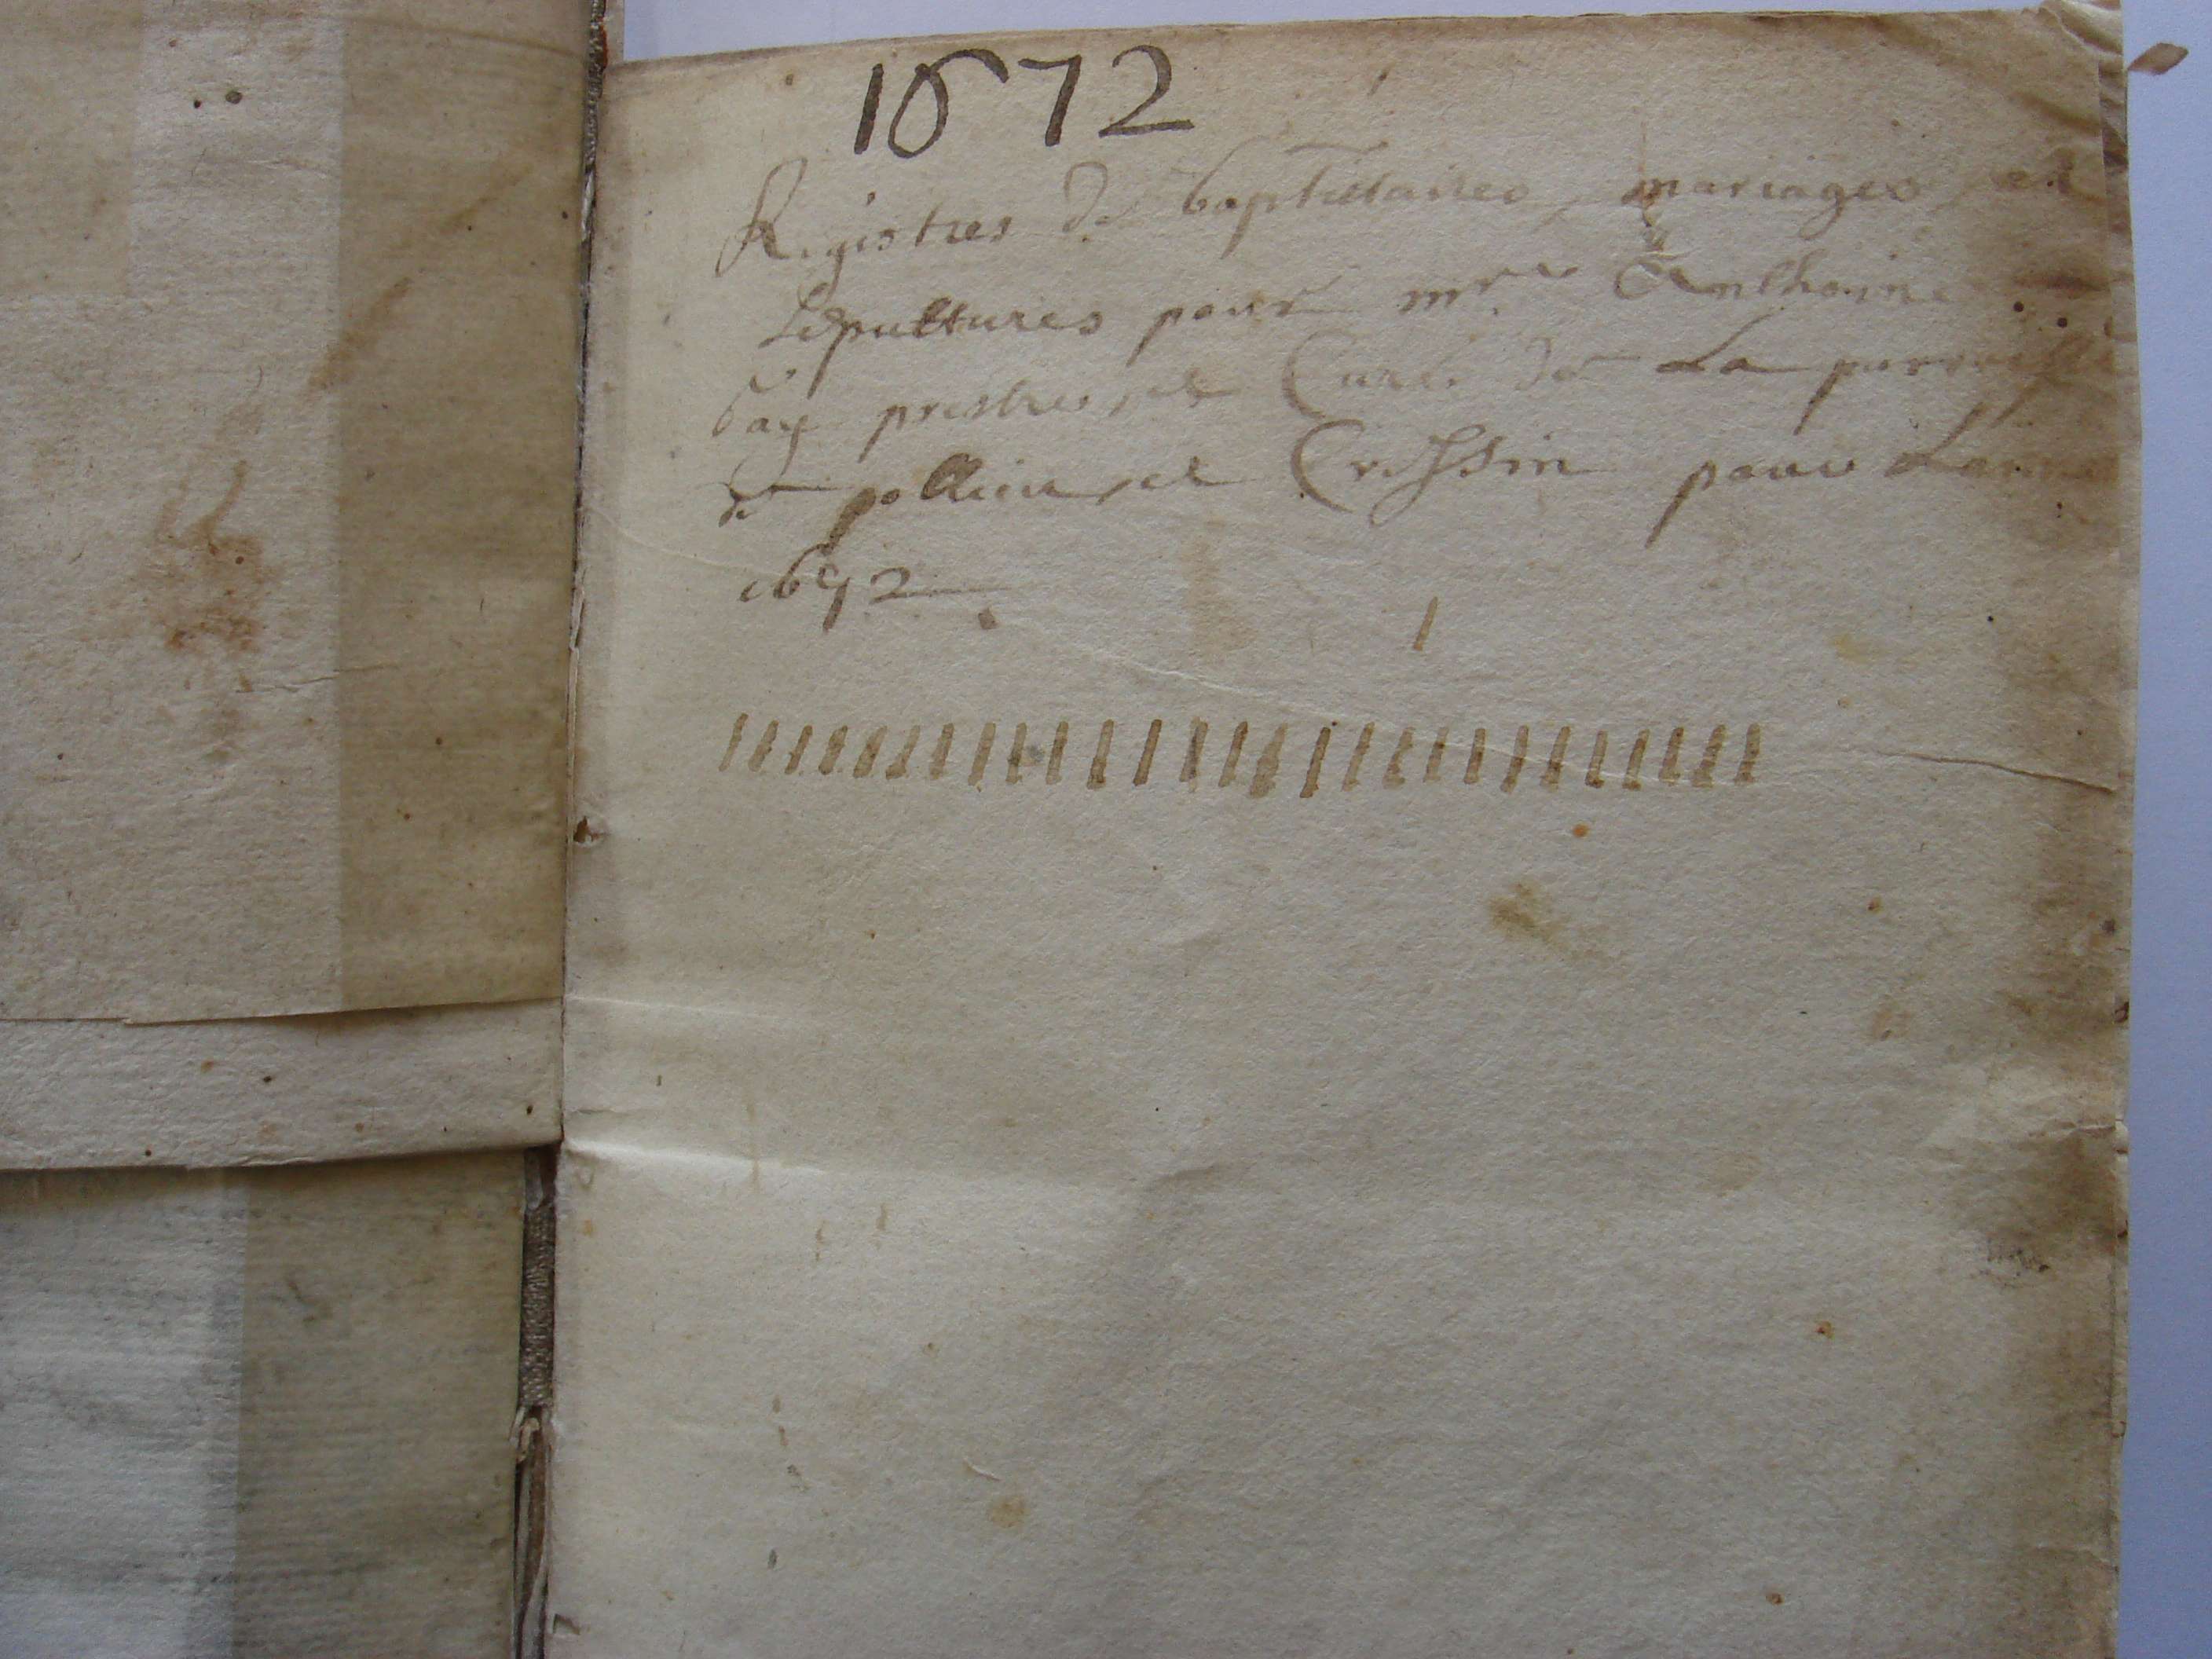 1672
Registres de baptistaires, mariages et
Sepultures pour mre Anthoine
Bay prestre, et Curé de La parroisse
de pollieu, et Cressin pour Lanné
1672